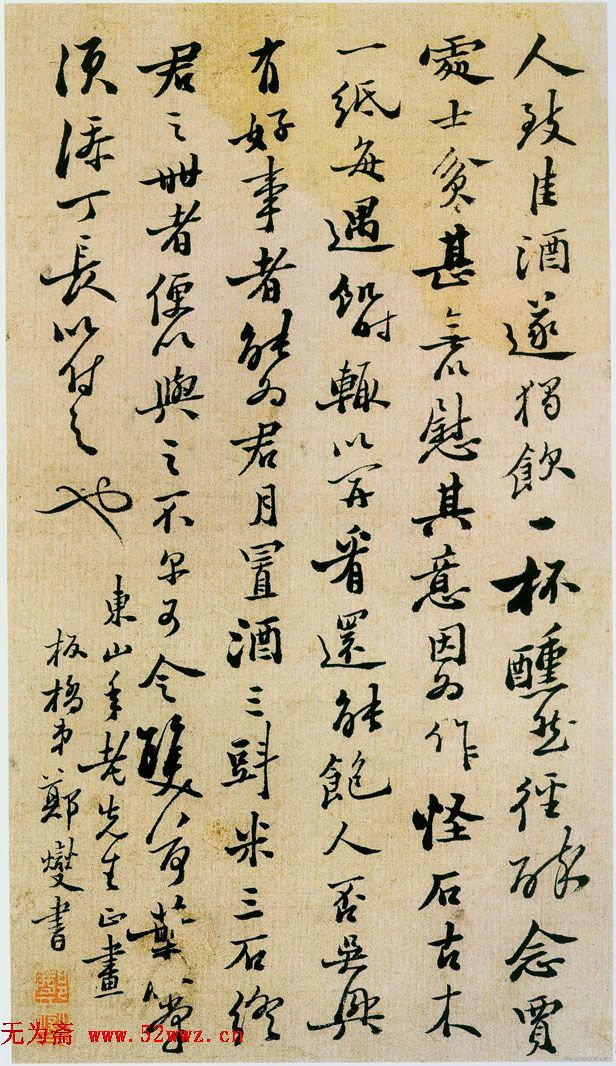 人致佳酒遂獨飲一杯醺然徑醉念賈
處士貧甚無以慰其意因為作怪石古木
一紙每遇飢時輒以開看還能飽人否吳興
有好事者能為君月置酒三斗米三石終
君之世者便以與之不尔可令雙荷葉掌
須添丁長以付之也
東山年老先生正畫
板橋弟鄭燮書
无为斋 www.52wwz.cn